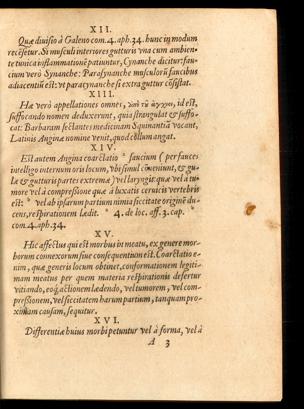 XII.
Quæ diuisio à Galeno com. 4. aph. 34. hunc in modum
recēsetur. Si musculi interiores gutturis vna cum ambien-
te tunica inflammationē patiuntur, Cynanche dicitur: fau-
cium verò Synanche: Parasynanche musculorū faucibus
adiacentiū est: vt paracynanche si extra guttur cōsistat.
XIII.
Hæ verò appellationes omnes, ἀπὸ τῦ ἄγχειν, id est,
suffocando nomen deduxerunt, quia strangulat & suffo-
cat: Barbaram sectantes medicinam Squinantiā vocant,
Latinis Anginæ nomine venit, quod collum angat.
XIV.
Est autem Angina coarctatio faucium (per fauces
intelligo internum oris locum, vbi simul cōueniunt, & gu-
læ & gutturis partes extremæ) vel laryngis quæ vel à tu-
more vel à compressione quæ à luxatis ceruicis vertebris
est: vel ab ipsarum partium nimia siccitate originē du-
cens, respirationem lædit. 4. de loc. aff. 3. cap.
com. 4. aph. 34.
XV.
Hic affectus qui est morbus in meatu, ex genere mor-
borum connexorum siue consequentium est. Coarctatio e-
nim, quæ generis locum obtinet, conformationem legiti-
mam meatus per quem materia respirationis defertur
vitiando, eoq́; actionem lædendo, vel tumorem, vel com-
pressionem, vel siccitatem harum partium, tanquam pro-
ximam causam, sequitur.
XVI.
Differentiæ huius morbi petuntur vel à forma, vel à
A 3